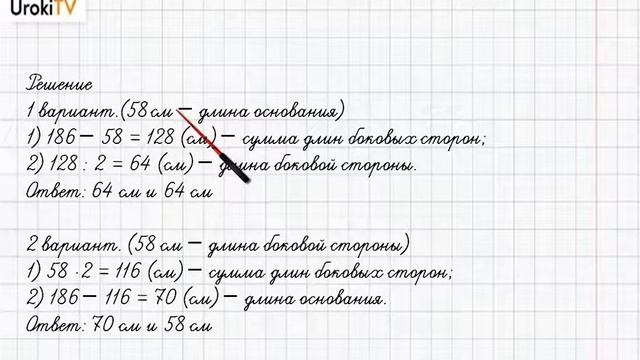 UrokiTV
Решение
1 вариант. (58 см – длина основания)
1) 186 – 58 = 128 (см) – сумма длин боковых сторон;
2) 128 : 2 = 64 (см) – длина боковой стороны.
Ответ: 64 см и 64 см
2 вариант. (58 см – длина боковой стороны)
1) 58 · 2 = 116 (см) – сумма длин боковых сторон;
2) 186 – 116 = 70 (см) – длина основания.
Ответ: 70 см и 58 см